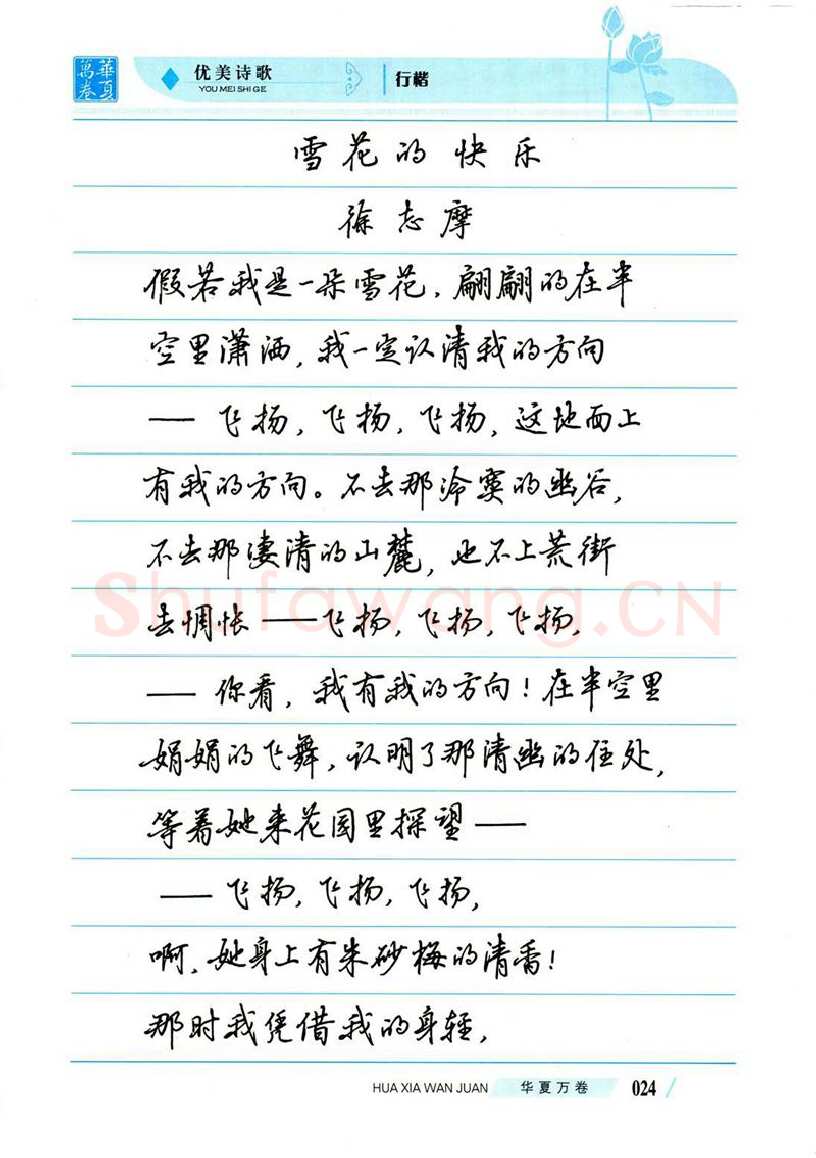 華夏萬卷
优美诗歌
YOU MEI SHI GE
行楷
雪花的快乐
徐志摩
假若我是一朵雪花，翩翩的在半
空里潇洒，我一定认清我的方向
——飞扬，飞扬，飞扬，这地面上
有我的方向。不去那冷寞的幽谷，
不去那凄清的山麓，也不上荒街
去惆怅——飞扬，飞扬，飞扬，
——你看，我有我的方向！在半空里
娟娟的飞舞，认明了那清幽的住处，
等着她来花园里探望——
——飞扬，飞扬，飞扬，
啊，她身上有朱砂梅的清香！
那时我凭借我的身轻，
Shufawang.CN
HUA XIA WAN JUAN
华夏万卷
024